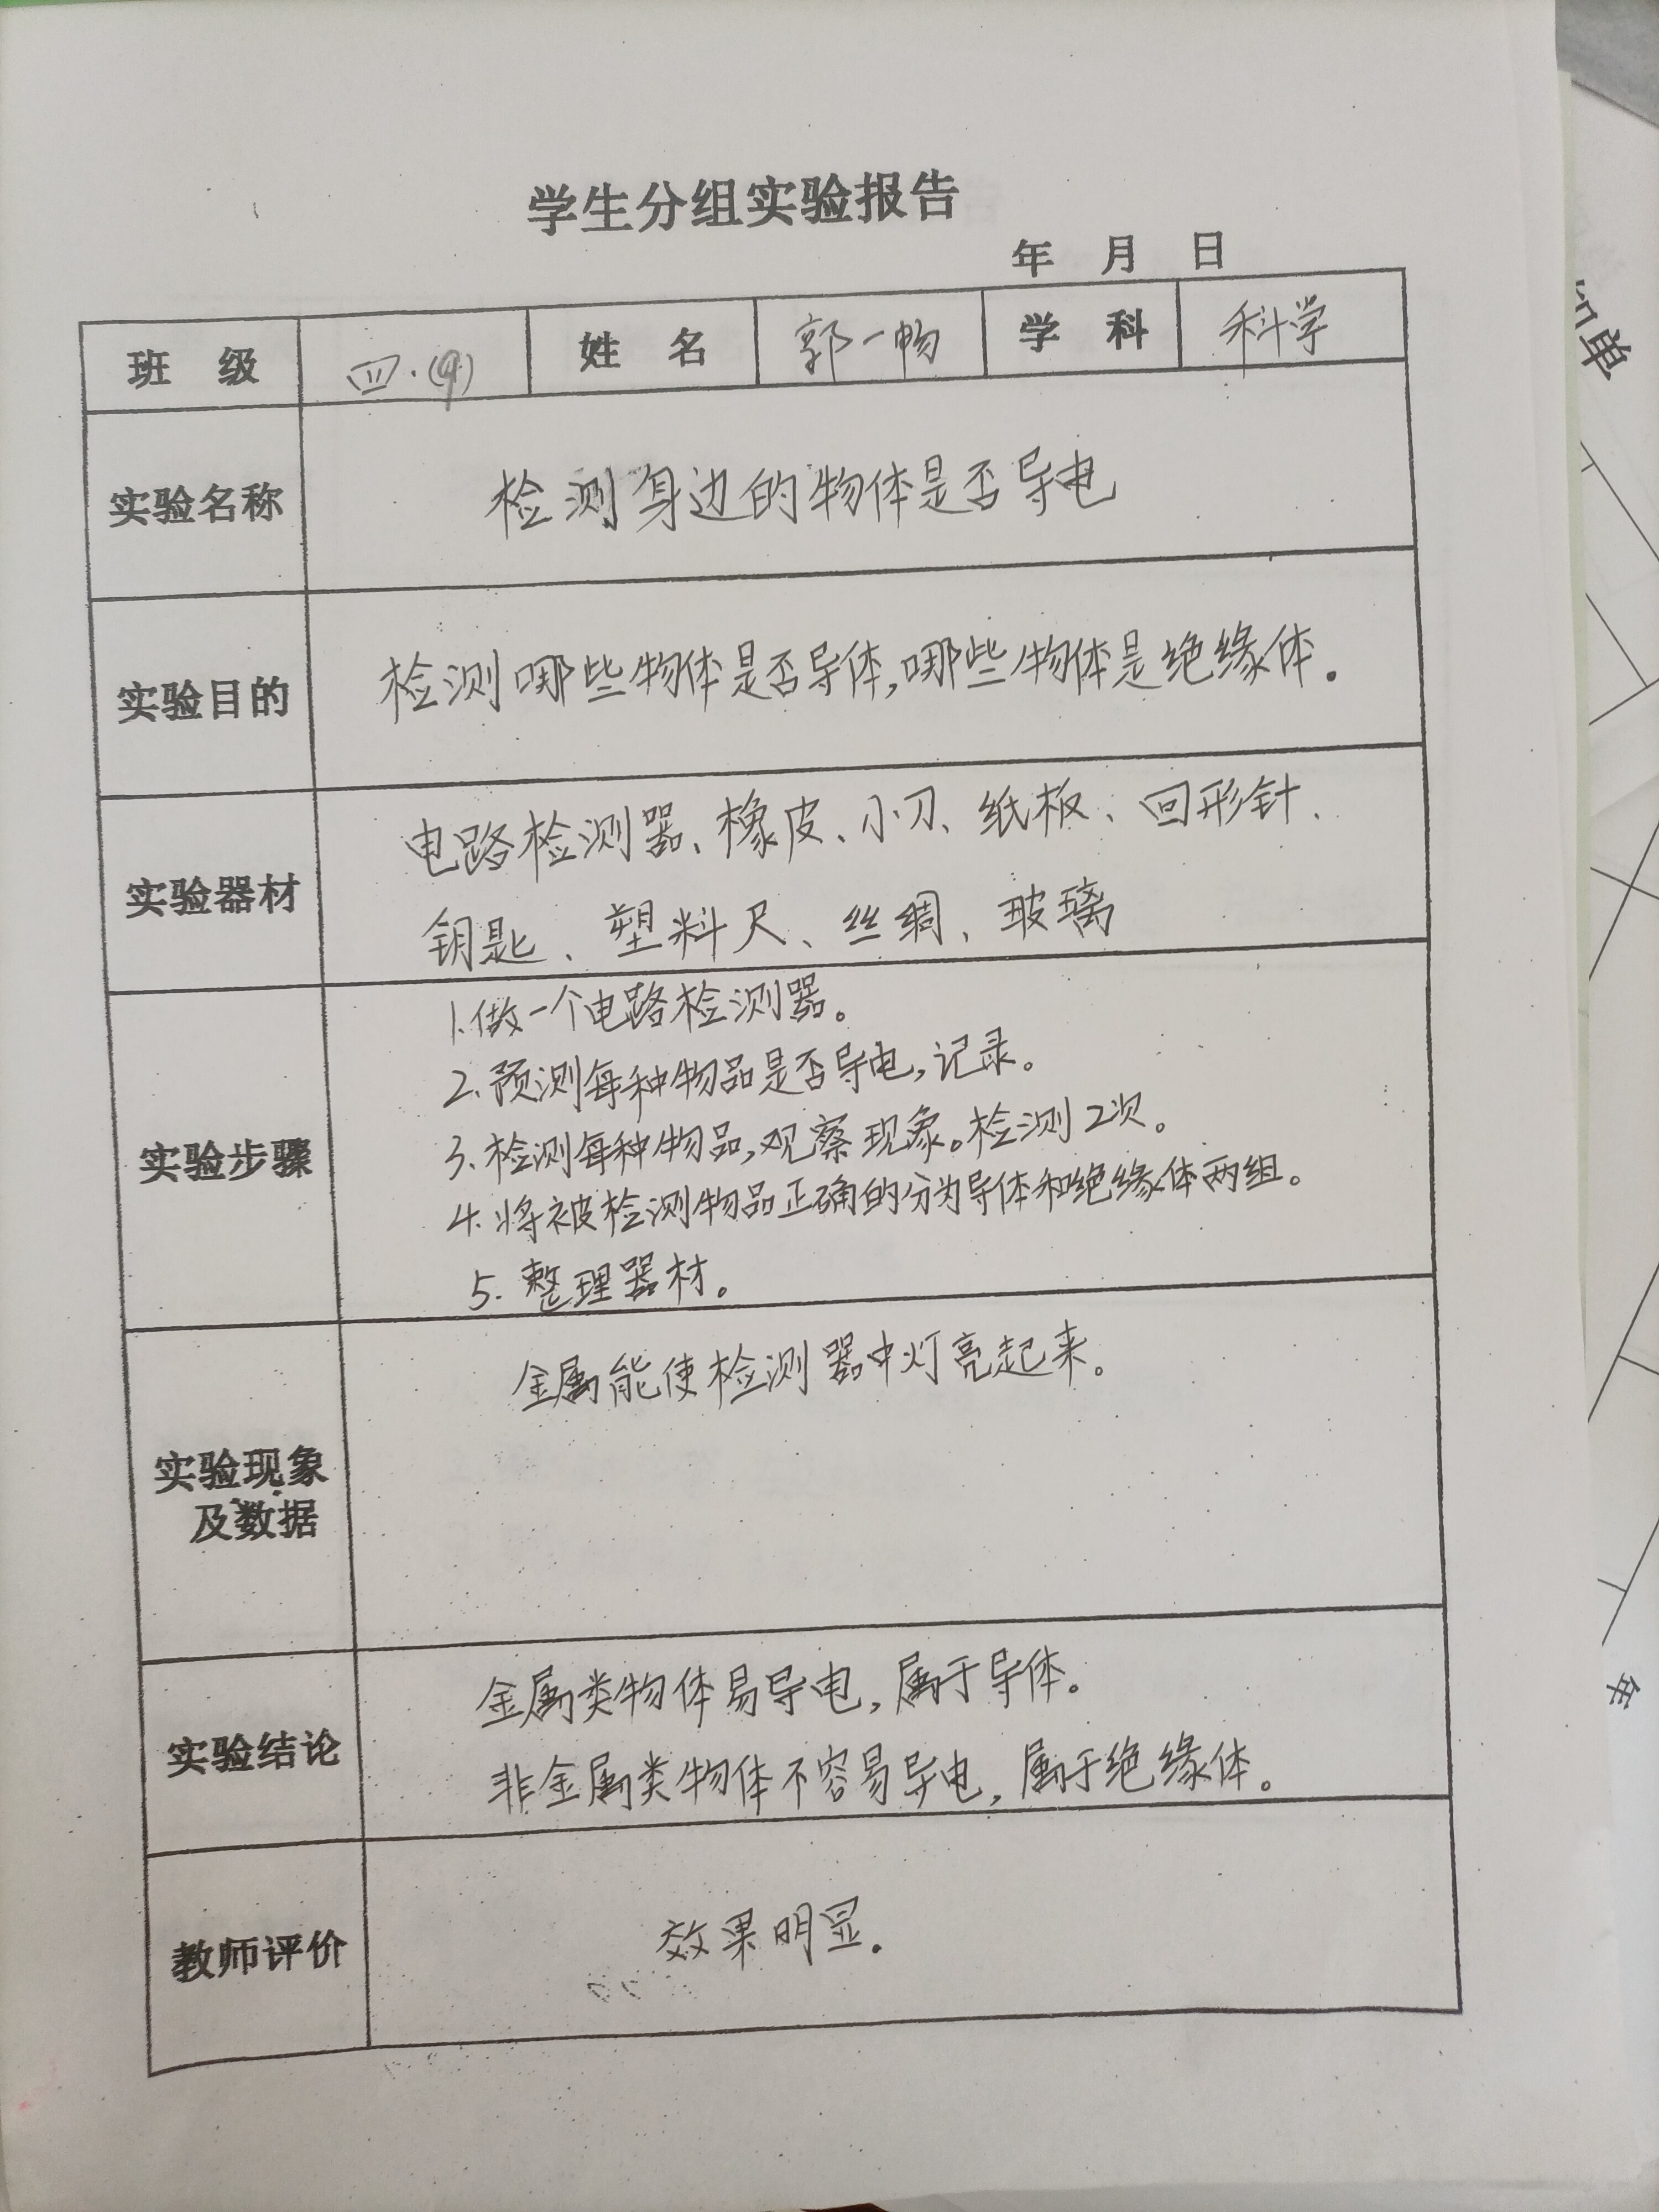 学生分组实验报告
年 月 日
班 级 四.(9) 姓 名 郭一畅 学 科 科学
实验名称 检测身边的物体是否导电
实验目的 检测哪些物体是否导体,哪些物体是绝缘体.
实验器材 电路检测器、橡皮、小刀、纸板、回形针、
钥匙、塑料尺、丝绸、玻璃
实验步骤
1.做一个电路检测器。
2.预测每种物品是否导电,记录。
3.检测每种物品,观察现象。检测2次。
4.将被检测物品正确的分为导体和绝缘体两组。
5.整理器材。
实验现象
及数据
金属能使检测器中灯亮起来。
实验结论
金属类物体易导电,属于导体。
非金属类物体不容易导电,属于绝缘体。
教师评价 效果明显.
单
年